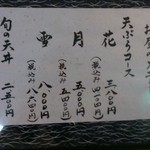 天ぷらコース
花 三八〇〇円
(税込み 四一〇〇円)
月 五〇〇〇円
(税込み 五四〇〇円)
雪 八〇〇〇円
(税込み 八六四〇円)
旬の天丼 二五〇〇円